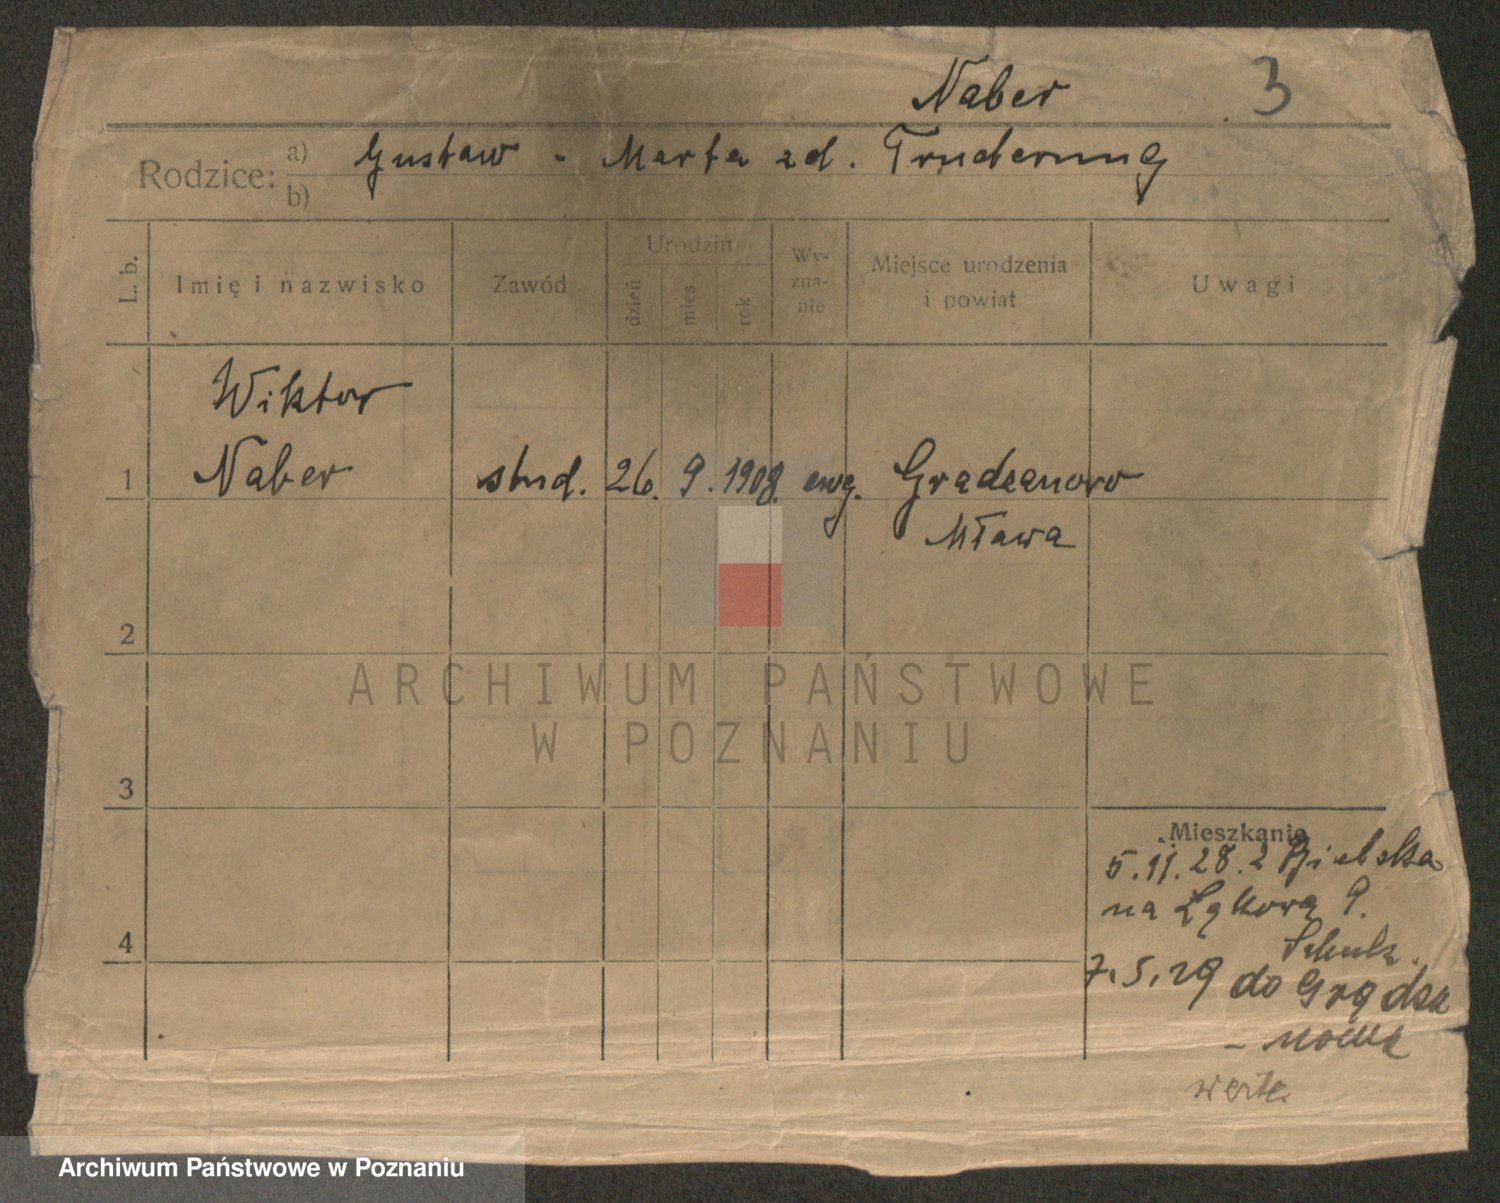 Naber 3
Rodzice: a) Gustaw - Marta zd. Truderung
b)
L. b. Imię i nazwisko Zawód Urodzin dzień mies rok Wy-zna-nie Miejsce urodzenia i powiat Uwagi
Wiktor
1 Naber stud. 26. 9. 1908. ewg. Grądzanowo
Mława
2
ARCHIWUM PAŃSTWOWE
W POZNANIU
3
Mieszkanie
5.11.28. z Bielska
na Łąkową 9.
4 Schulz.
7.5.29 do Grądza
- nowa
verte.
Archiwum Państwowe w Poznaniu